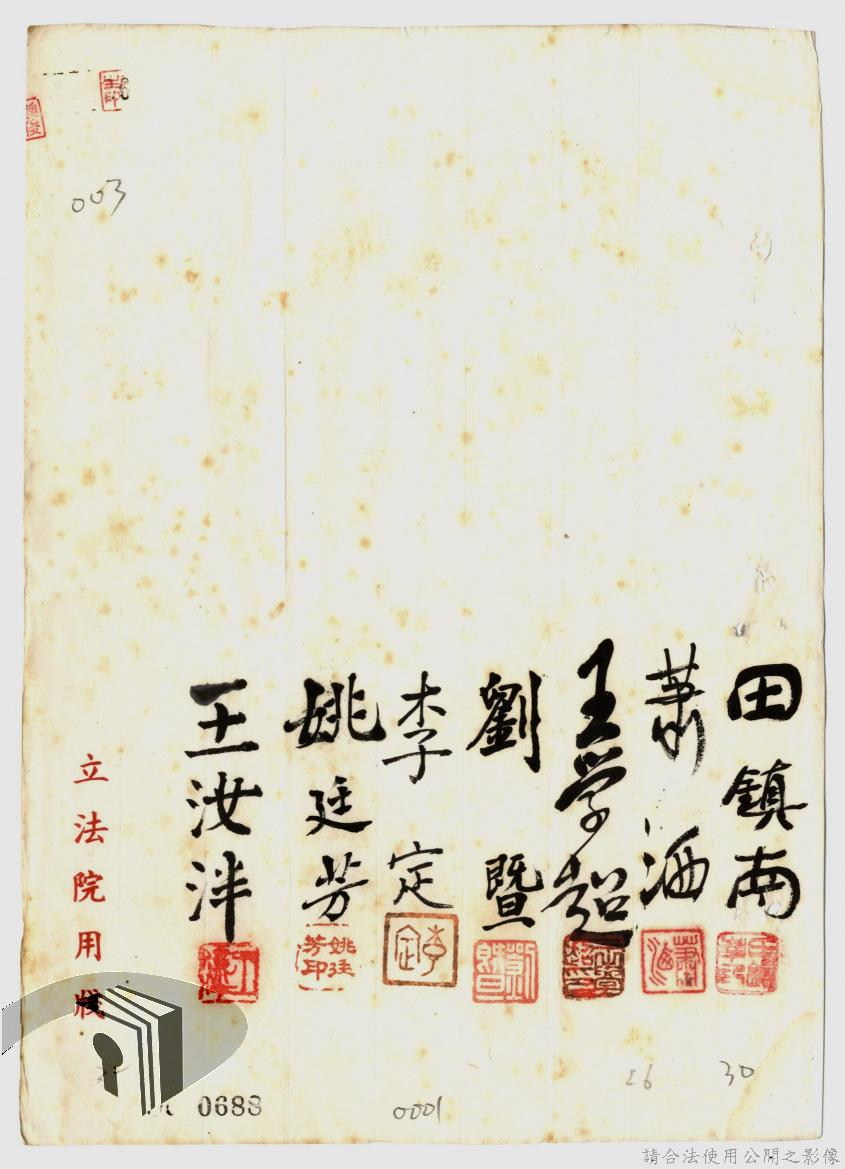 田鎮南
蕭洒
王学超
劉暨
李定
姚廷芳
王汝泮
立法院用牋
003
李定
姚廷芳印
30
26
0001
0688
請合法使用公開之影像